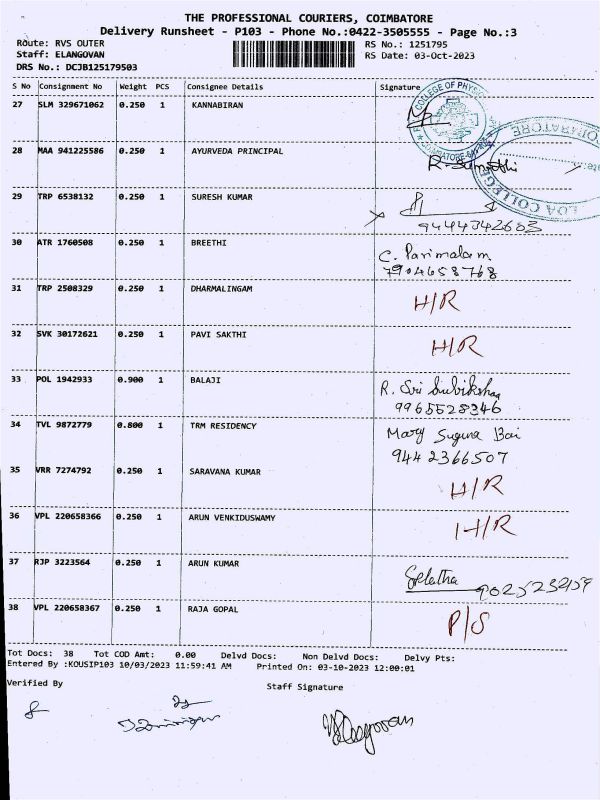 THE PROFESSIONAL COURIERS, COIMBATORE
Delivery Runsheet - P103 - Phone No.:0422-3505555 - Page No.:3
Route: RVS OUTER
RS No.: 1251795
Staff: ELANGOVAN
RS Date: 03-Oct-2023
DRS No.: DCJB125179503
S No Consignment No Weight PCS Consignee Details Signature
27 SLM 329671062 0.250 1 KANNABIRAN
COLLEGE OF PHYS
COIMBATORE-641
28 MAA 941225586 0.250 1 AYURVEDA PRINCIPAL
COIMBATORE
COLLEGE
29 TRP 6538132 0.250 1 SURESH KUMAR
9444342603
30 ATR 1760508 0.250 1 BREETHI C. Parimalam
7904658768
31 TRP 2508329 0.250 1 DHARMALINGAM H/R
32 SVK 30172621 0.250 1 PAVI SAKTHI H/R
33 POL 1942933 0.900 1 BALAJI R. Sri Subikshaa
9965528346
34 TVL 9872779 0.800 1 TRM RESIDENCY Mary Suguna Bai
9442366507
35 VRR 7274792 0.250 1 SARAVANA KUMAR H/R
36 VPL 220658366 0.250 1 ARUN VENKIDUSWAMY H/R
37 RJP 3223564 0.250 1 ARUN KUMAR
38 VPL 220658367 0.250 1 RAJA GOPAL P/S
Tot Docs: 38 Tot COD Amt: 0.00 Delvd Docs: Non Delvd Docs: Delvy Pts:
Entered By :KOUSIP103 10/03/2023 11:59:41 AM Printed On: 03-10-2023 12:00:01
Verified By
Staff Signature